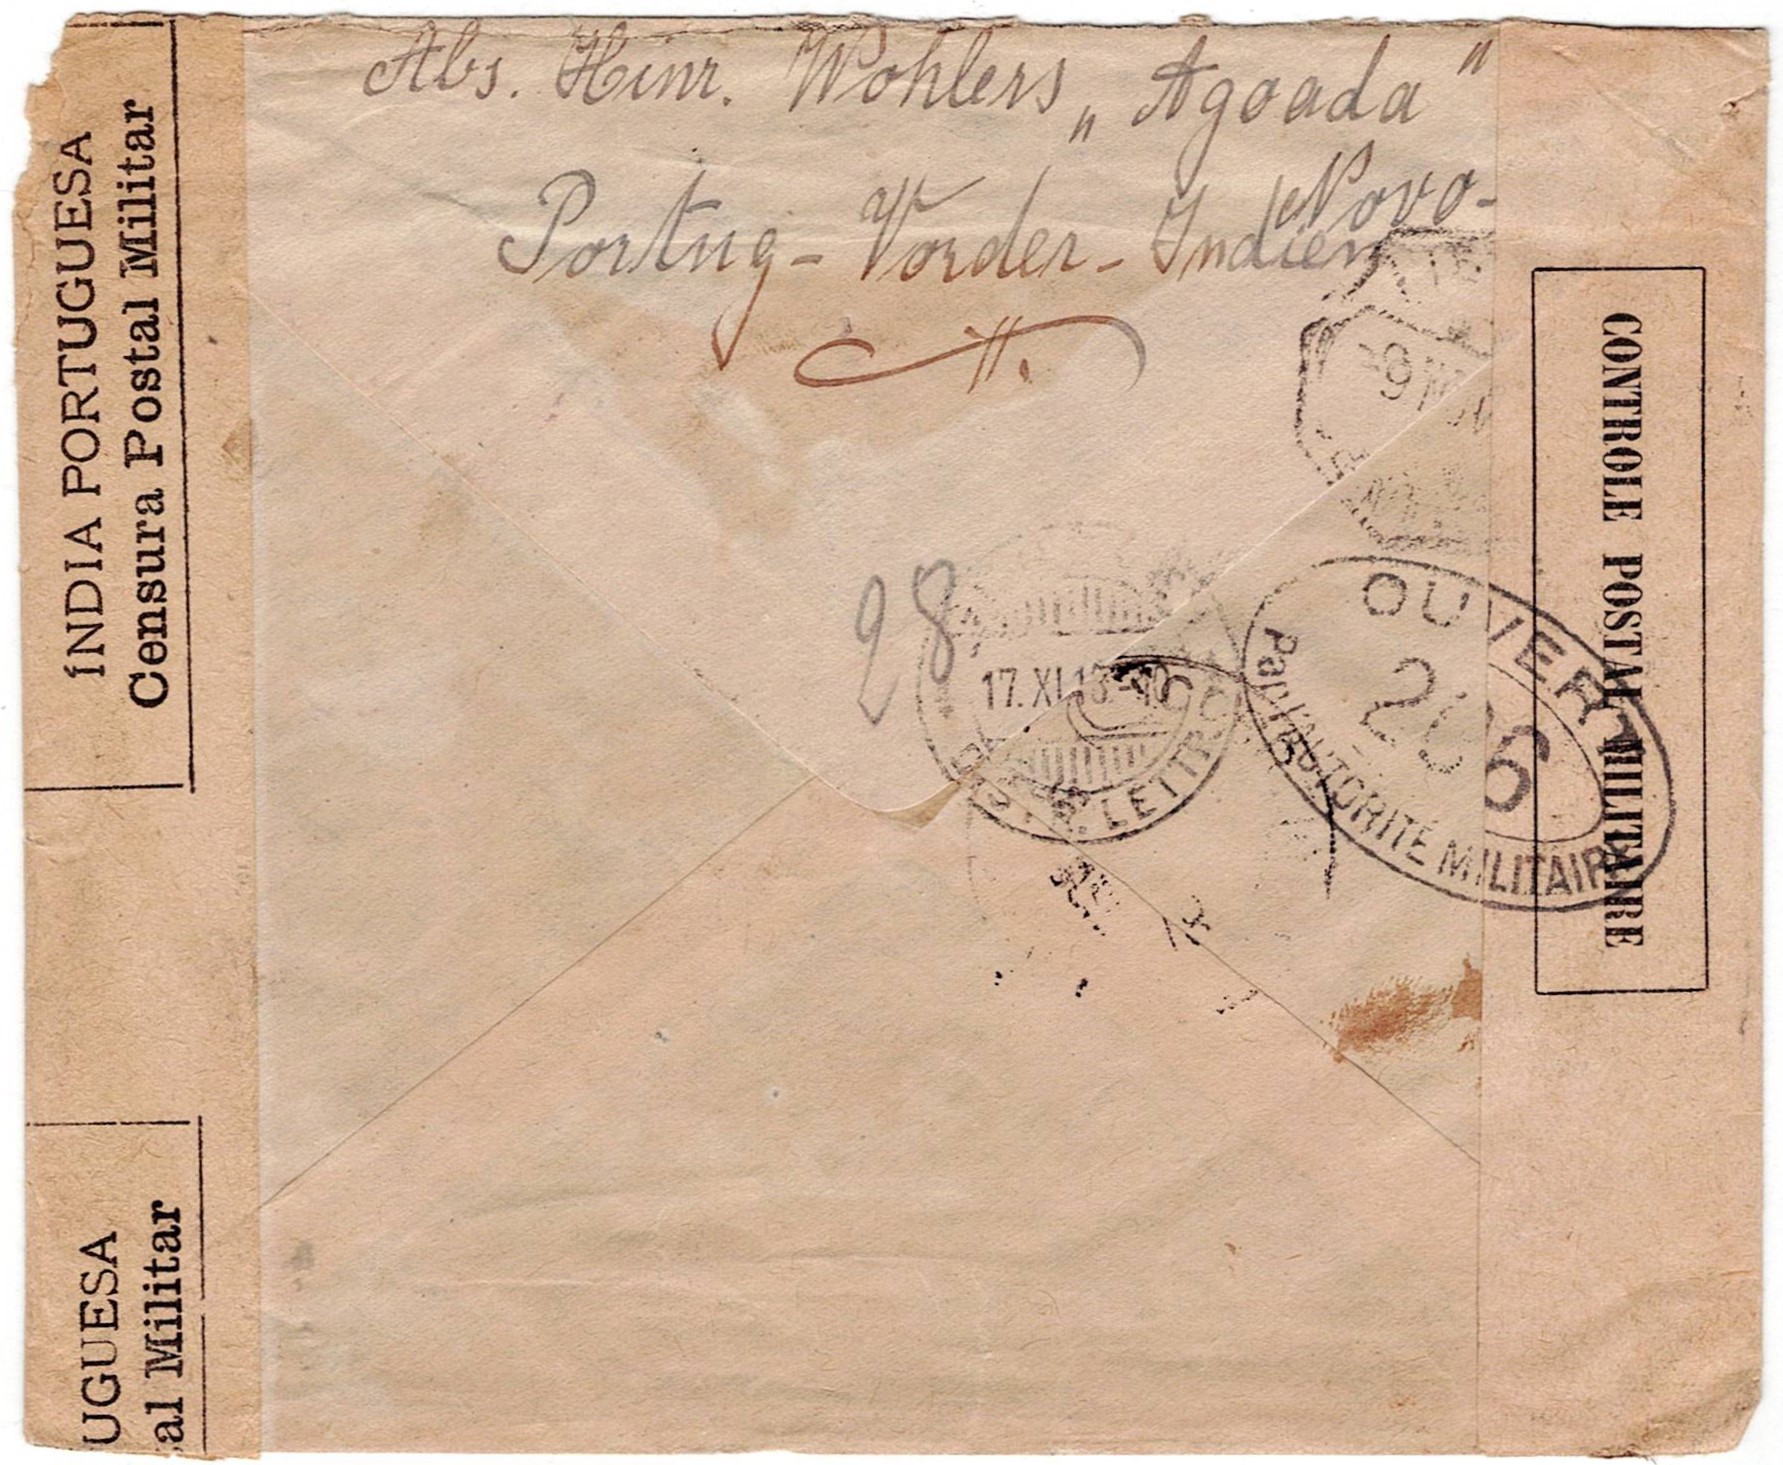 Abs. Hinr. Wohlers „Agoada"
Novo-
Portug-Vorder-Indien
ÍNDIA PORTUGUESA
Censura Postal Militar
UGUESA
al Militar
28
-9
17. XI
LETTR
OUVERT
Par l'AUTORITÉ MILITAIRE
206
CONTROLE POSTAL MILITAIRE